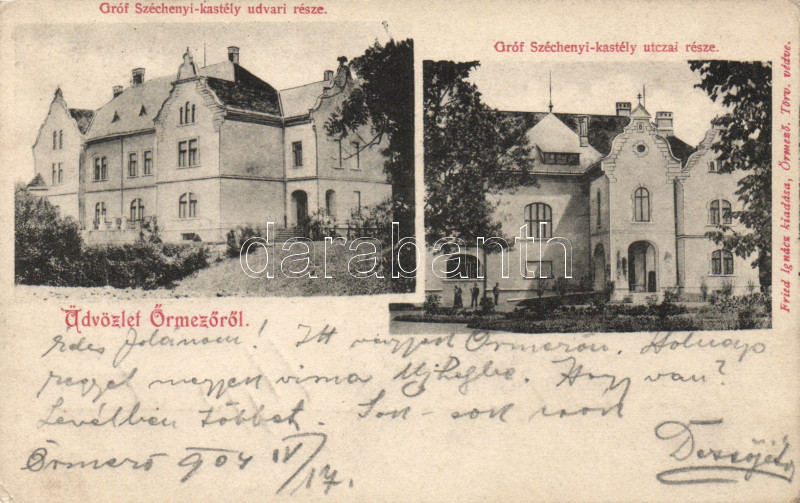 Gróf Széchenyi-kastély udvari része.
Gróf Széchenyi-kastély utczai része.
Fried Ignácz kiadása, Őrmező. Törv. védve.
darabanth
Üdvözlet Őrmezőről.
Édes Jolánom! Itt vagyok Őrmezőn. Holnap
reggel megyek vissza Ujhelybe. Hogy van?
Levélben többet. Sok-sok
Őrmező 904 IV/17.